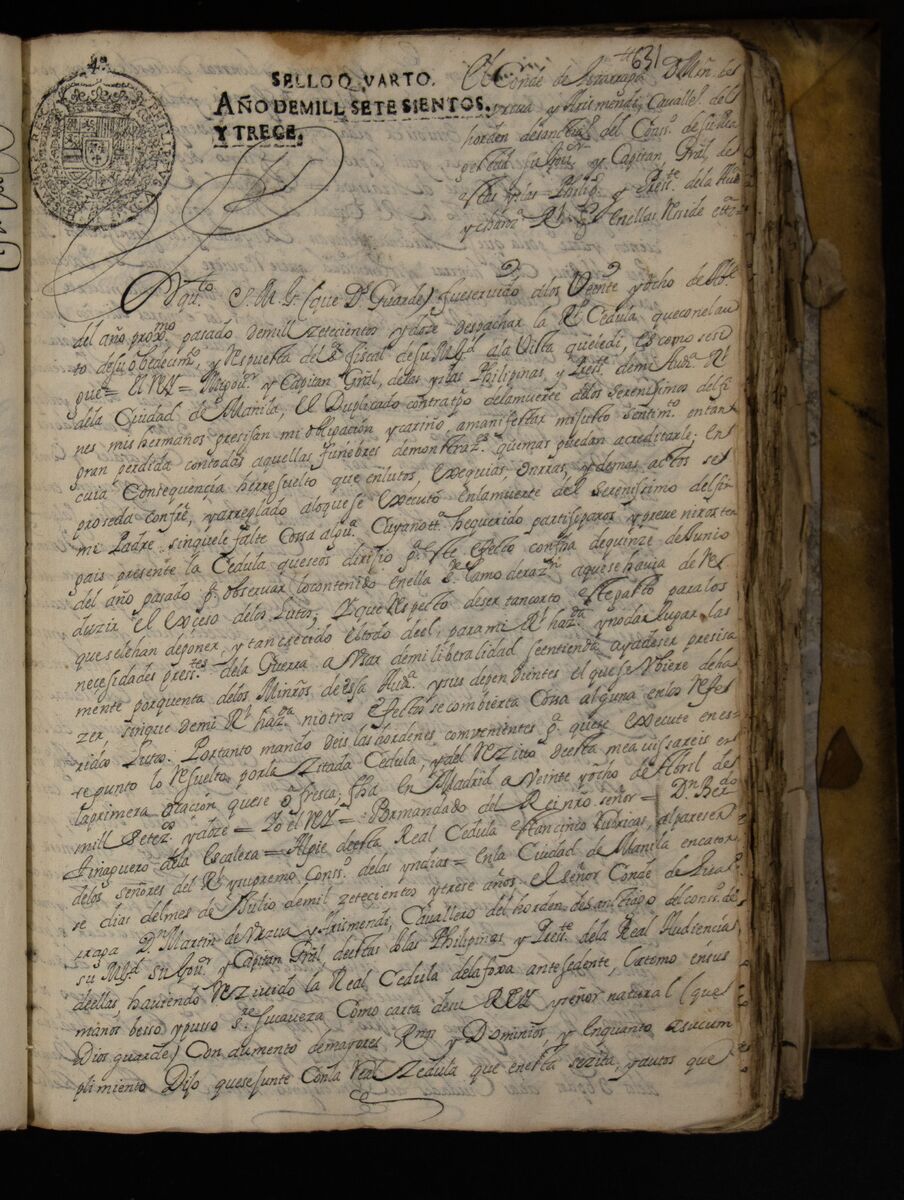 631
4º
SELLO QVARTO.
AÑO DE MILL SETE SIENTOS.
Y TRECE.
El Conde de Lizarraga D Mñ. de
Vrsua y Arismendi Cavalleº del
horden de Santiaº del Conssº de su Ma
gestad su Govºʳ y Capitan Gràl de
estas yslas Philipˢ y Presˢᵗᵉ de la Auᵃ
y chanzª Rˡ q̃ en ellas Reside ettª
Por qᵗᵒ S. M. (que Dˢ Guarde) fue servido a los Veinte y ocho de Abˡ
del año proxᵐᵒ pasado de mill zetecientos y doze despachar la Rˡ Cedula que con el au
to de su obedecimᵗᵒ, y Respuesta del Sʳ fiscal de su Mgᵈ a la Vista que le di, es como se si
gue = El REY = Mi govºʳ y Capitan Gràl, de las yslas Philipinas, y Presᵗᵉ de mi Audª Rˡ
de la Ciudad de Manila, El Duplicado contratpo de la muerte de los serenissimos delfi
nes mis hermanos precisan mi obligación y cariño, a manifestar mi justo sentimᵗᵒ en tan
gran perdida con todas aquellas funebres demonstrazˢ que mas puedan acreditarle; en
cuia Consequencia he rresuelto que en lutos, exequias, onrras, y demas actos se
proseda confrẽ, y arreglado a lo que se executó en la muerte del Serenissimo delfin
mi Padre sin que le falte Cossa algª. Cuya nottª he querido partisiparos y preveniros ten
gais presente la Cedula que se os dirijio pª este efecto con fha de quinze de Junio
del año pasado pª observar lo contenido en ella Sʳᵉ la moderazⁿ a que se havia de Re
duzir el exceso de los Lutos; Y que Respecto de ser tan corto este gasto para los
que se le han de poner, y tan crecido el todo de el, para mi Rˡ hazᵈᵃ y no dar lugar las
necesidades presᵗᵉˢ de la Guerra a Vsar de mi liberalidad se entienda aya de ser precisa
mente por quenta de los Minrõs de essa Audª y sus dependientes el que se Vbiere de ha
zer, sin que de mi Rˡ hazᵈᵃ ni otros efectos se combierta Cossa alguna en los Refe
ridos Lutos. Por tanto mando deis las hordenes combenientes pª que se execute en es-
te punto lo Resuelto por la Zitada Cedula, y del Rezivo de esta me avissareis en
la primera ocasion que se ofresca; fha en Madrid a Veinte y ocho de Abril de
mill setezº y doze = Yo el REY = Por mandado del Rei nrõ señor = Dⁿ Berᵈᵒ
Tinaguero de la Escalera = Al pie de esta Real Cedula estan cinco rubricas, al pareser
de los señores del Rˡ y supremo Conssº de las yndias = En la Ciudad de Manila en cator
se dias del mes de Julio de mil zetecientos y trese años. el señor Conde de Lizar-
raga Dⁿ Martin de Vrsua y Arismendi, Cavallero del horden de santiago del conssº de
su Mgᵈ su Govºʳ y Capitan Gràl de estas yslas Philipinas y Presᵗᵉ de la Real Audiencia
de ellas, haviendo Rezivido la Real Cedula de la foxa antesedente, la tomo en sus
manos besso y puso sʳᵉ su caveza Como carta de su REY y señor natural (que
Dios guarde) Con aumento de mayores Rnos y Dominios, y en quanto a su cum
plimiento Dijo que se junte Con la Real Zedula que en esta se zita, y autos que